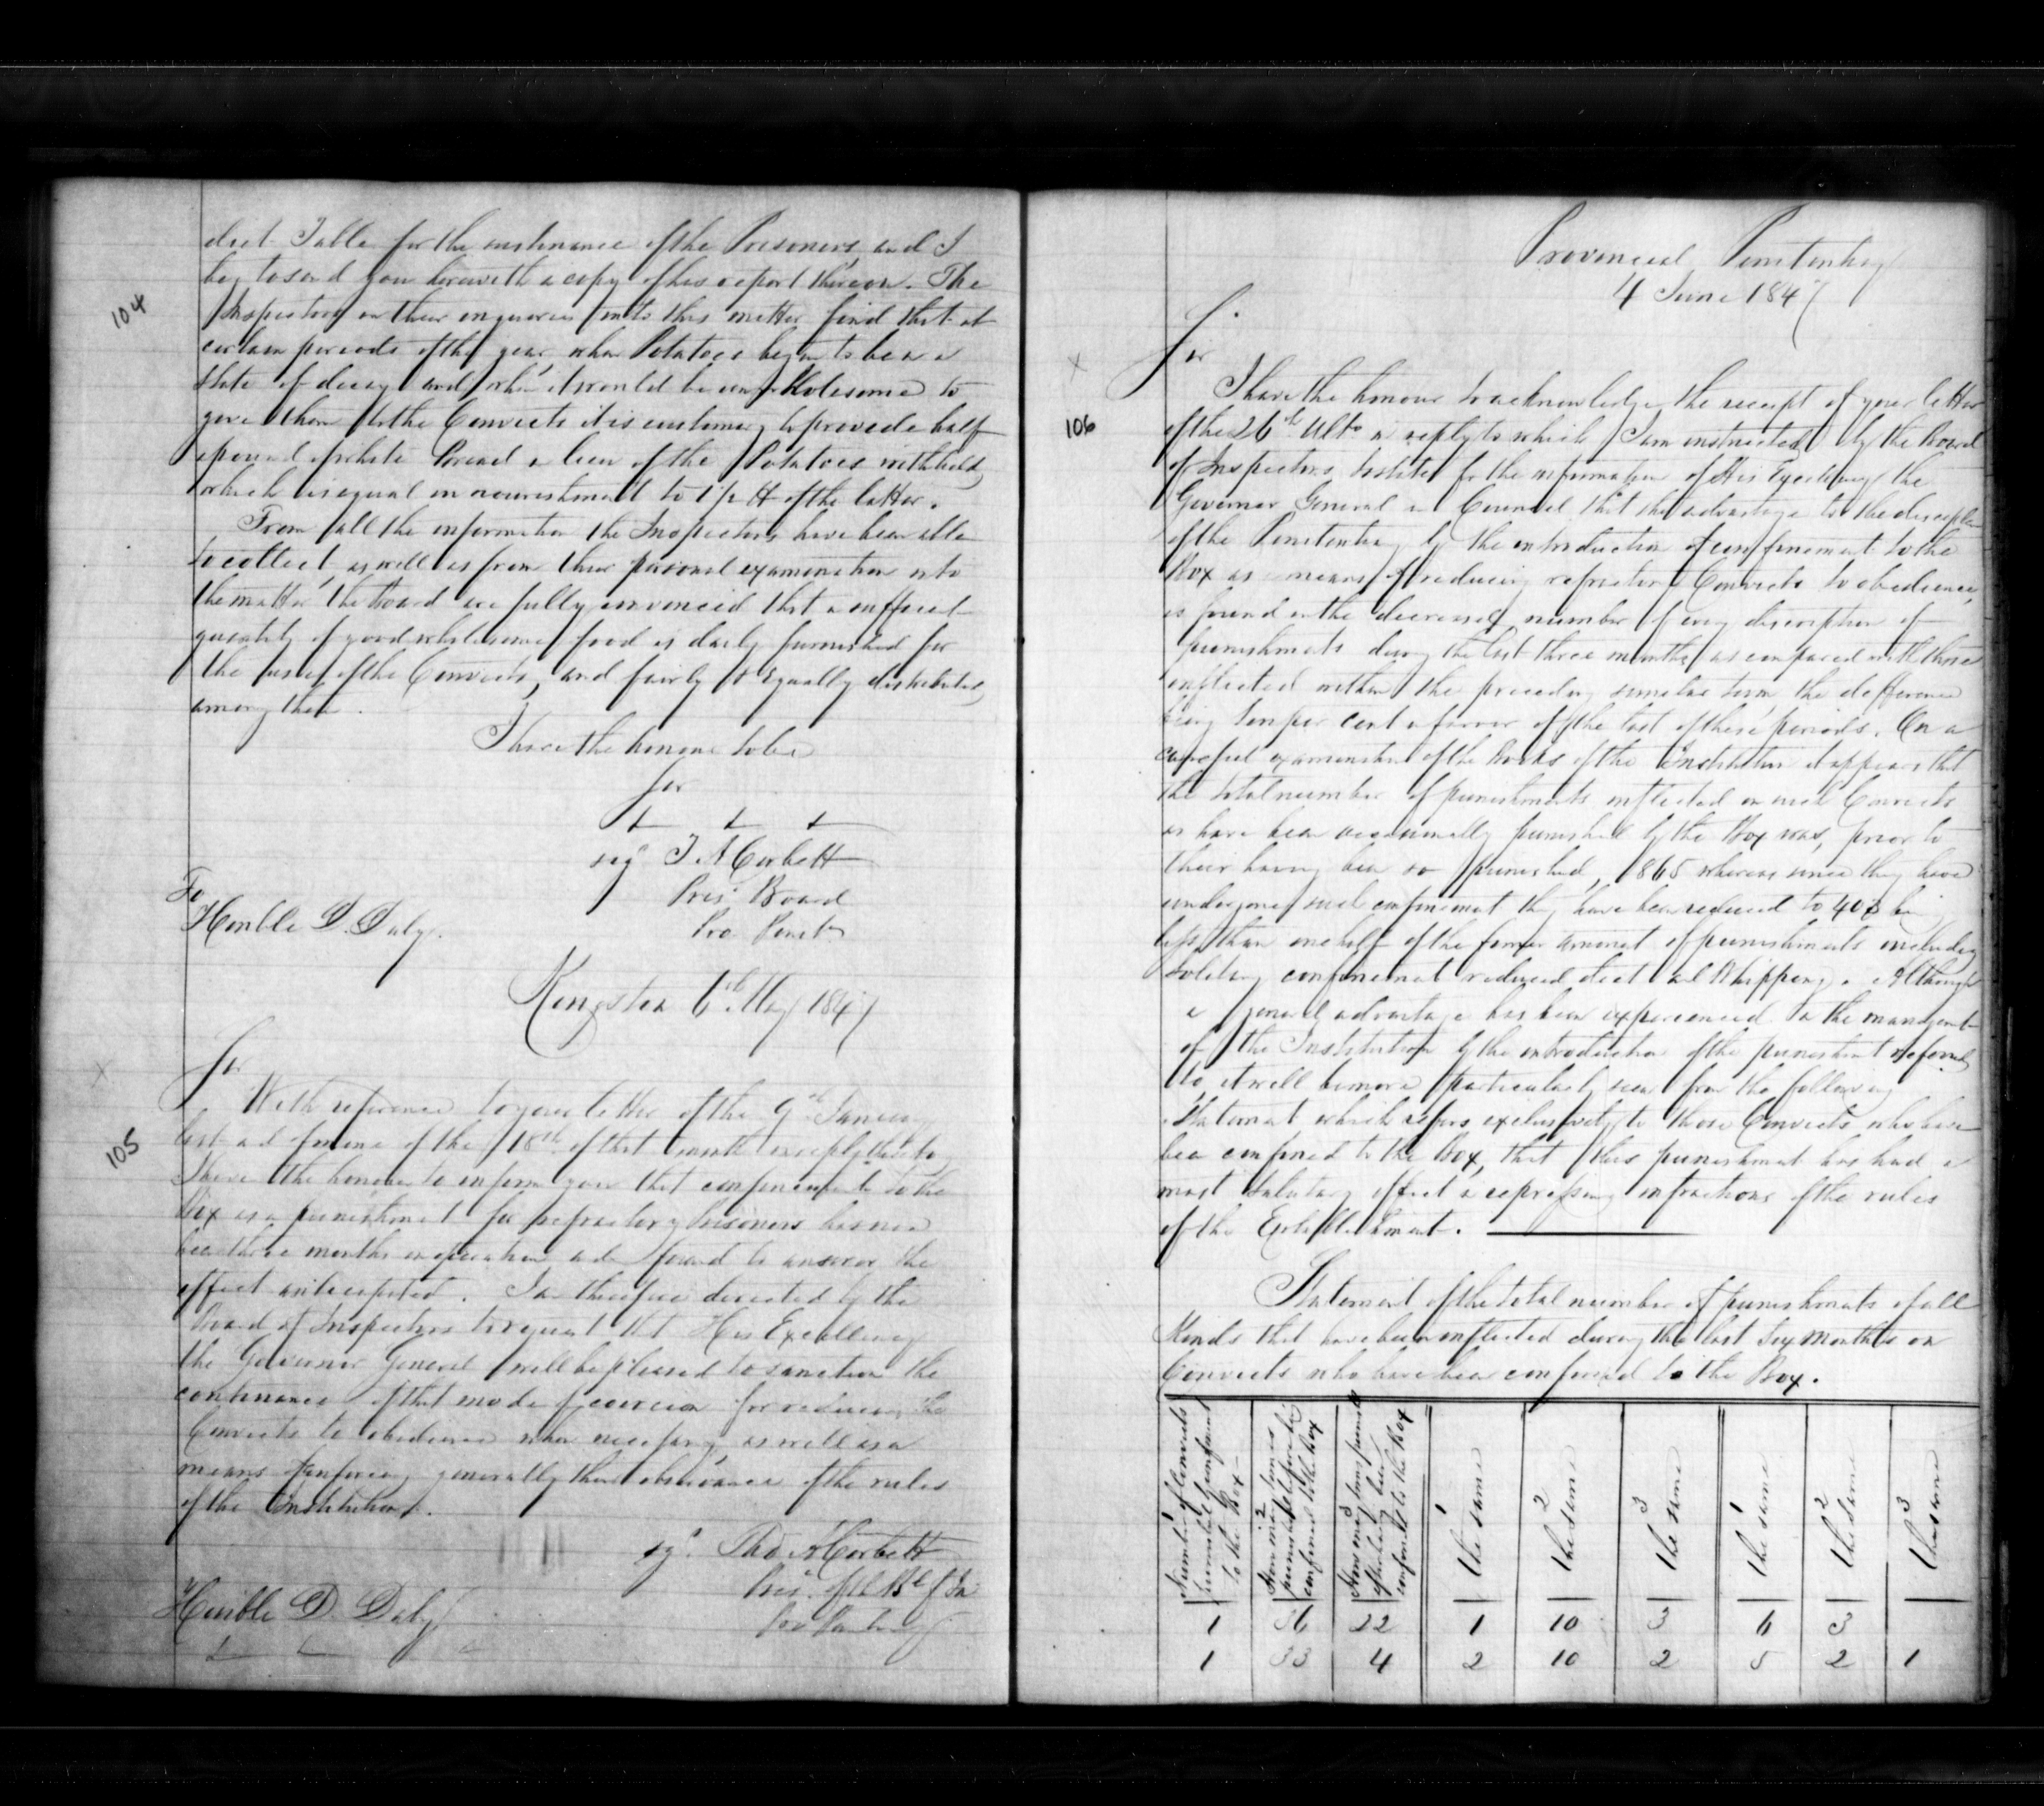 104
diet Table for the sustenance of the Prisoners, and I
beg to send you herewith a copy of his report thereon. The
Inspectors on their enquiries into this matter find that at
certain periods of the year, when Potatoes begin to be in a
state of decay and when it would be unwholesome to
give them to the Convicts it is customary to provide half
a pound of white Bread in lieu of the Potatoes withheld,
which is equal in nourishment to 1 1/2 lb of the latter.
From all the information the Inspectors have been able
to collect, as well as from their personal examination into
the matter the Board are fully convinced that a sufficient
quantity of good wholesome food is daily furnished for
the use of the Convicts, and fairly & Equally distributed
among them.
I have the honour to be
Sir
sigd T A Corbett
Presi Board
Pro Penity
To
Honble D. Daly
Kingston 6th May 1847
105
Sir
With reference to your letter of the 9th January
last and of mine of the 18th of that month in reply thereto,
I have the honour to inform you that confinement to the
Box as a punishment for refractory Prisoners has now
been three months in operation and found to answer the
effect anticipated. I am therefore directed by the
Board of Inspectors to request that His Excellency
the Governor General will be pleased to sanction the
continuance of that mode of coercion for reducing the
Convicts to obedience when necessary, as well as a
means of enforcing generally the observance of the rules
of the Institution.
sigd Thos A Corbett
Presi of the Bd of In
Pro Penitenty
Honble D. Daly
Provincial Penitentiary
4 June 1847
106
Sir
I have the honour to acknowledge the receipt of your letter
of the 26th Ulto in reply to which I am instructed by the Board
of Inspectors to state for the information of His Excellency the
Governor General in Council that the advantage to the discipline
of the Penitentiary by the introduction of confinement to the
Box as a means of reducing refractory Convicts to obedience,
is found in the decreased number of every description of
punishments during the last three months as compared with those
inflicted within the preceding similar term the difference
being ten per cent in favor of the last of these periods. On a
careful examination of the Books of the Institution it appears that
the total number of punishments inflicted on such Convicts
as have been occasionally punished by the Box was, prior to
their having been so punished, 1865 whereas since they have
undergone such confinement they have been reduced to 40 being
less than one half of the former amount of punishments including
solitary confinement reduced diet and Whipping. Although
a general advantage has been experienced in the management
of the Institution by the introduction of the punishment referred
to, it will be more particularly seen from the following
Statement which refers exclusively to those Convicts who have
been confined to the Box, that this punishment has had a
most salutary effect in repressing infractions of the rules
of the Establishment.
Statement of the total number of punishments of all
Kinds that have been inflicted during the last Six Months on
Convicts who have been confined to the Box.
1 Number of Convicts punished by confinement to the Box
2 How many times punished before being confined to the Box
3 How many times punished after having been confined to the Box
1 the same
2 the same
3 the same
1 the same
2 the same
3 the same
1 36 22 1 10 3 6 3
1 33 4 2 10 2 5 2 1